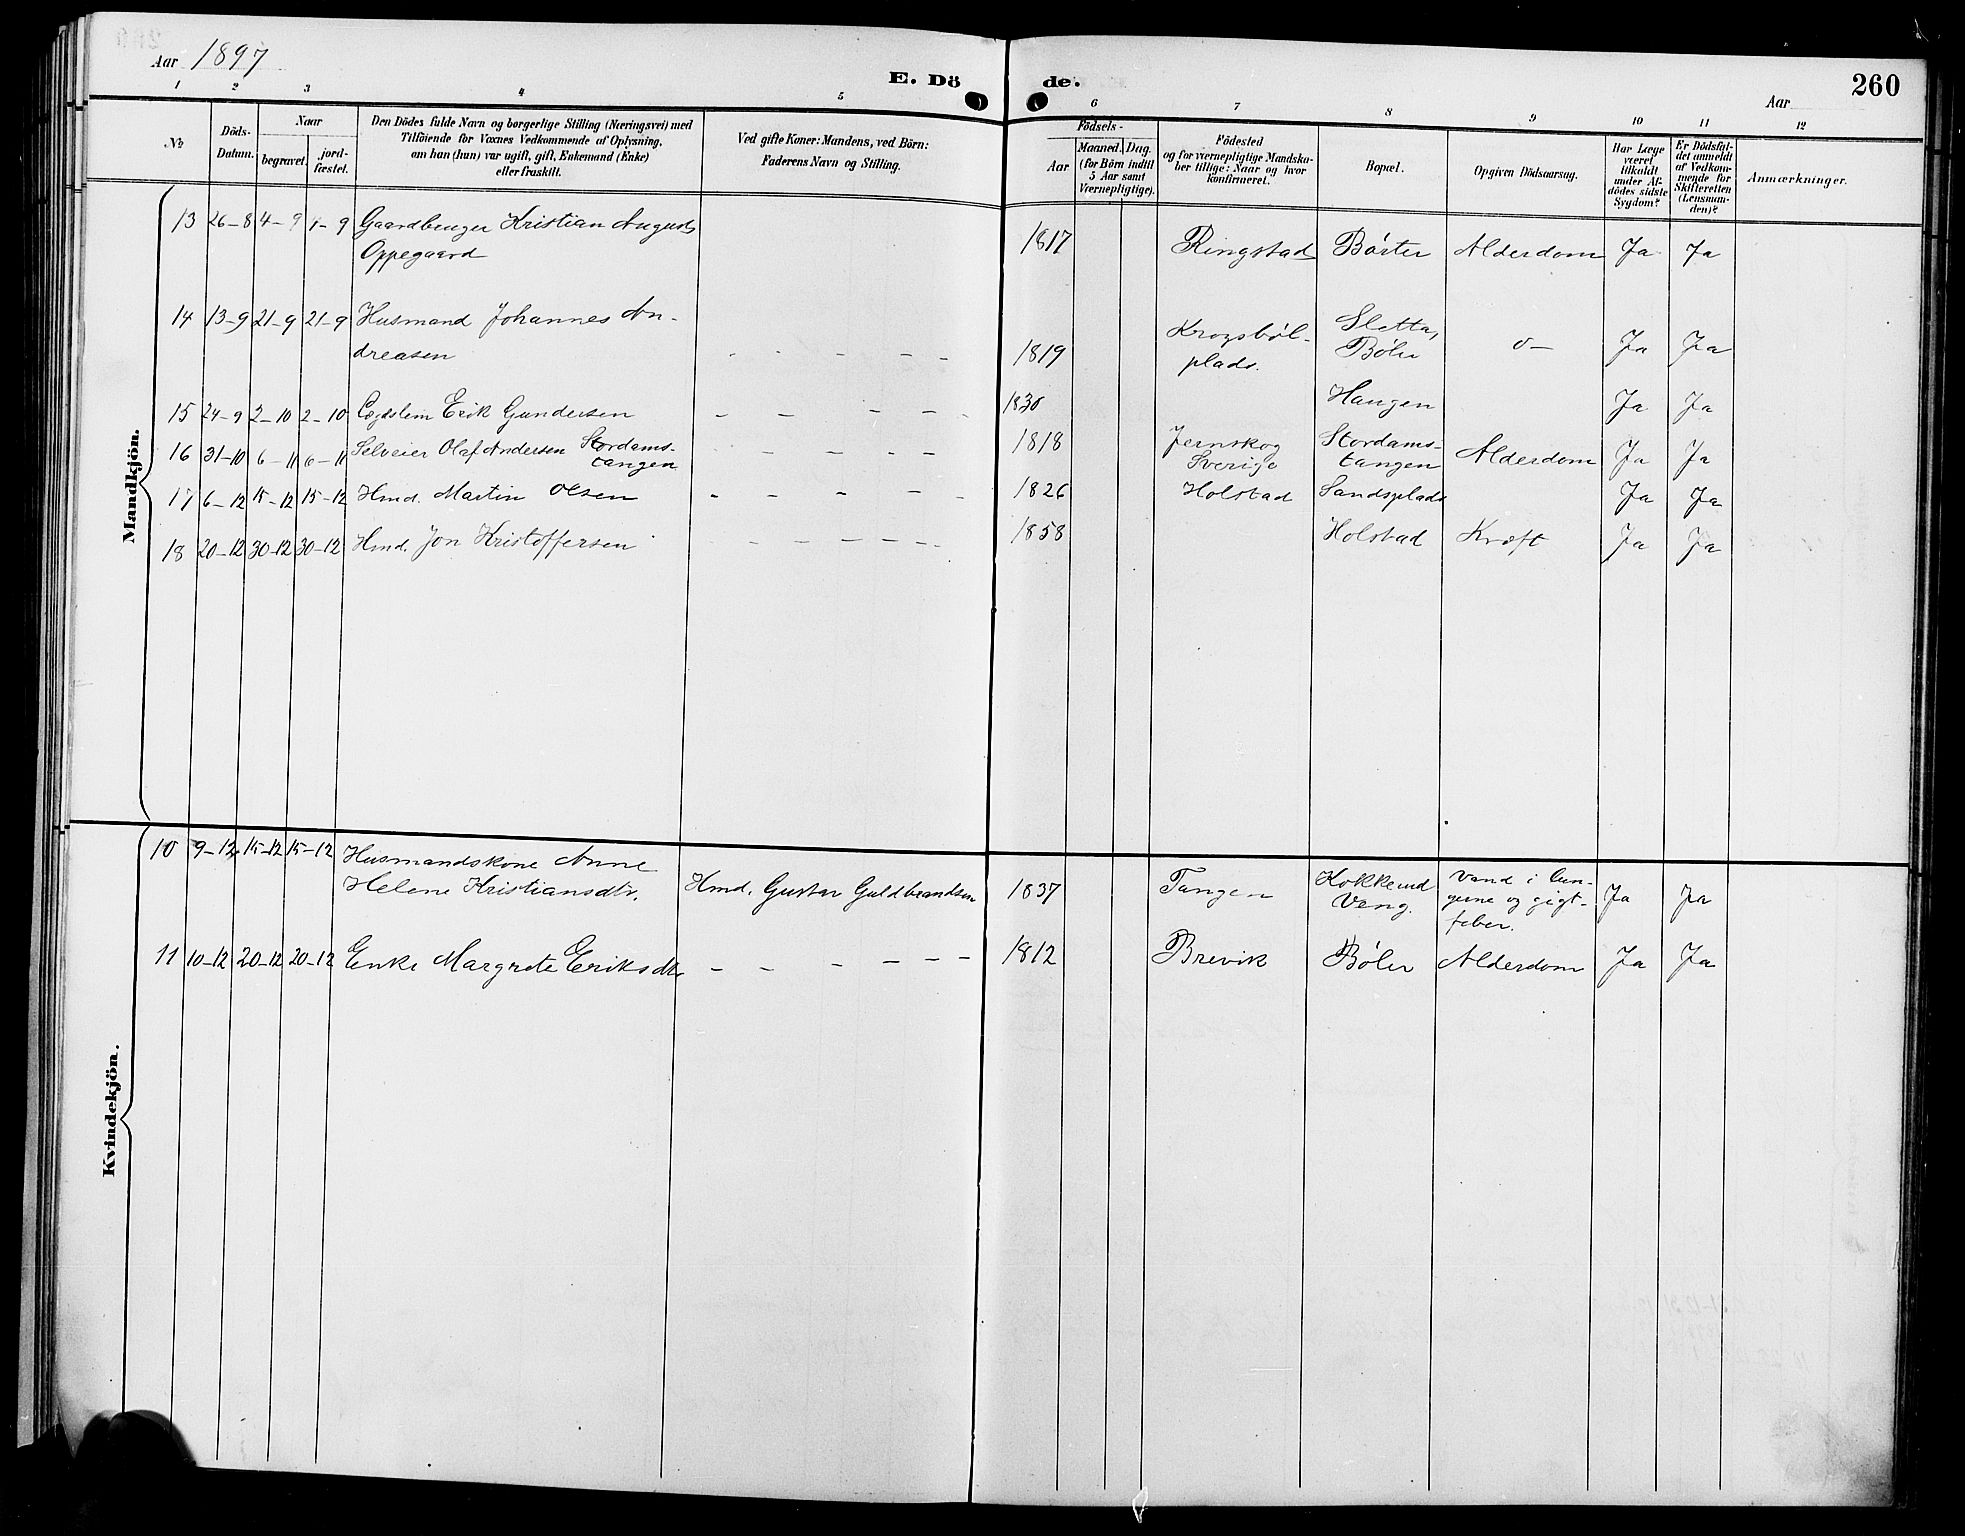 Aar 1897
E. Dö de.
Aar
260
1 2 3 4 5 6 7 8 9 10 11 12
No
Döds-Datum.
Naar
begravet.
jord-fæstet.
Den Dödes fulde Navn og borgerlige Stilling (Næringsvei) med
Tilföiende for Voxnes Vedkommende af Oplysning,
om han (hun) var ugift, gift, Enkemand (Enke)
eller fraskilt.
Ved gifte Koner: Mandens, ved Börn:
Faderens Navn og Stilling.
Födsels-
Aar
Maaned. Dag.
(for Börn indtil
5 Aar samt
Værnepligtige).
Födested
og for værnepligtige Mandska-
ber tillige: Naar og hvor
konfirmeret.
Bopæl.
Opgiven Dödsaarsag.
Har Læge
været
tilkaldt
under Af-
dödes sidste
Sygdom?
Er Dödsfal-
det anmeldt
af Vedkom-
mende for
Skifteretten
(Lensman-
den)?
Anmærkninger.
Mandkjön.
13 26-8 4-9 4-9 Gaardbruger Kristian August
Oppegaard 1817 Ringstad Börter Alderdom Ja Ja
14 13-9 21-9 21-9 Husmand Johannes An-
dreasen - - - - - 1819 Krogsbøl-
plads. Sletta,
Bøler o- Ja Ja
15 24-9 2-10 2-10 Lægdslem Erik Gundersen - - - - - 1830 Haugen Ja Ja
16 31-10 6-11 6-11 Selveier Olaf Andersen Stordams-
tangen - - - - - 1818 Jernskog
Sverige Stordams-
tangen Alderdom Ja Ja
17 6-12 15-12 15-12 Hmd. Martin Olsen - - - - - 1826 Holstad Sandsplads Ja Ja
18 20-12 30-12 30-12 Hmd. Jon Kristoffersen - - - - - - 1858 Holstad Kræft Ja Ja
Kvindekjön.
10 9-12 15-12 15-12 Husmandskone Anne
Helene Kristiansdtr. Hmd. Gustav Guldbrandsen 1837 Tangen Kokkerud
Veng. Vand i Lun-
gerne og gigt-
feber. Ja Ja
11 10-12 20-12 20-12 Enke Margrete Eriksdtr - - - - - - 1812 Brevik Bøler Alderdom Ja Ja